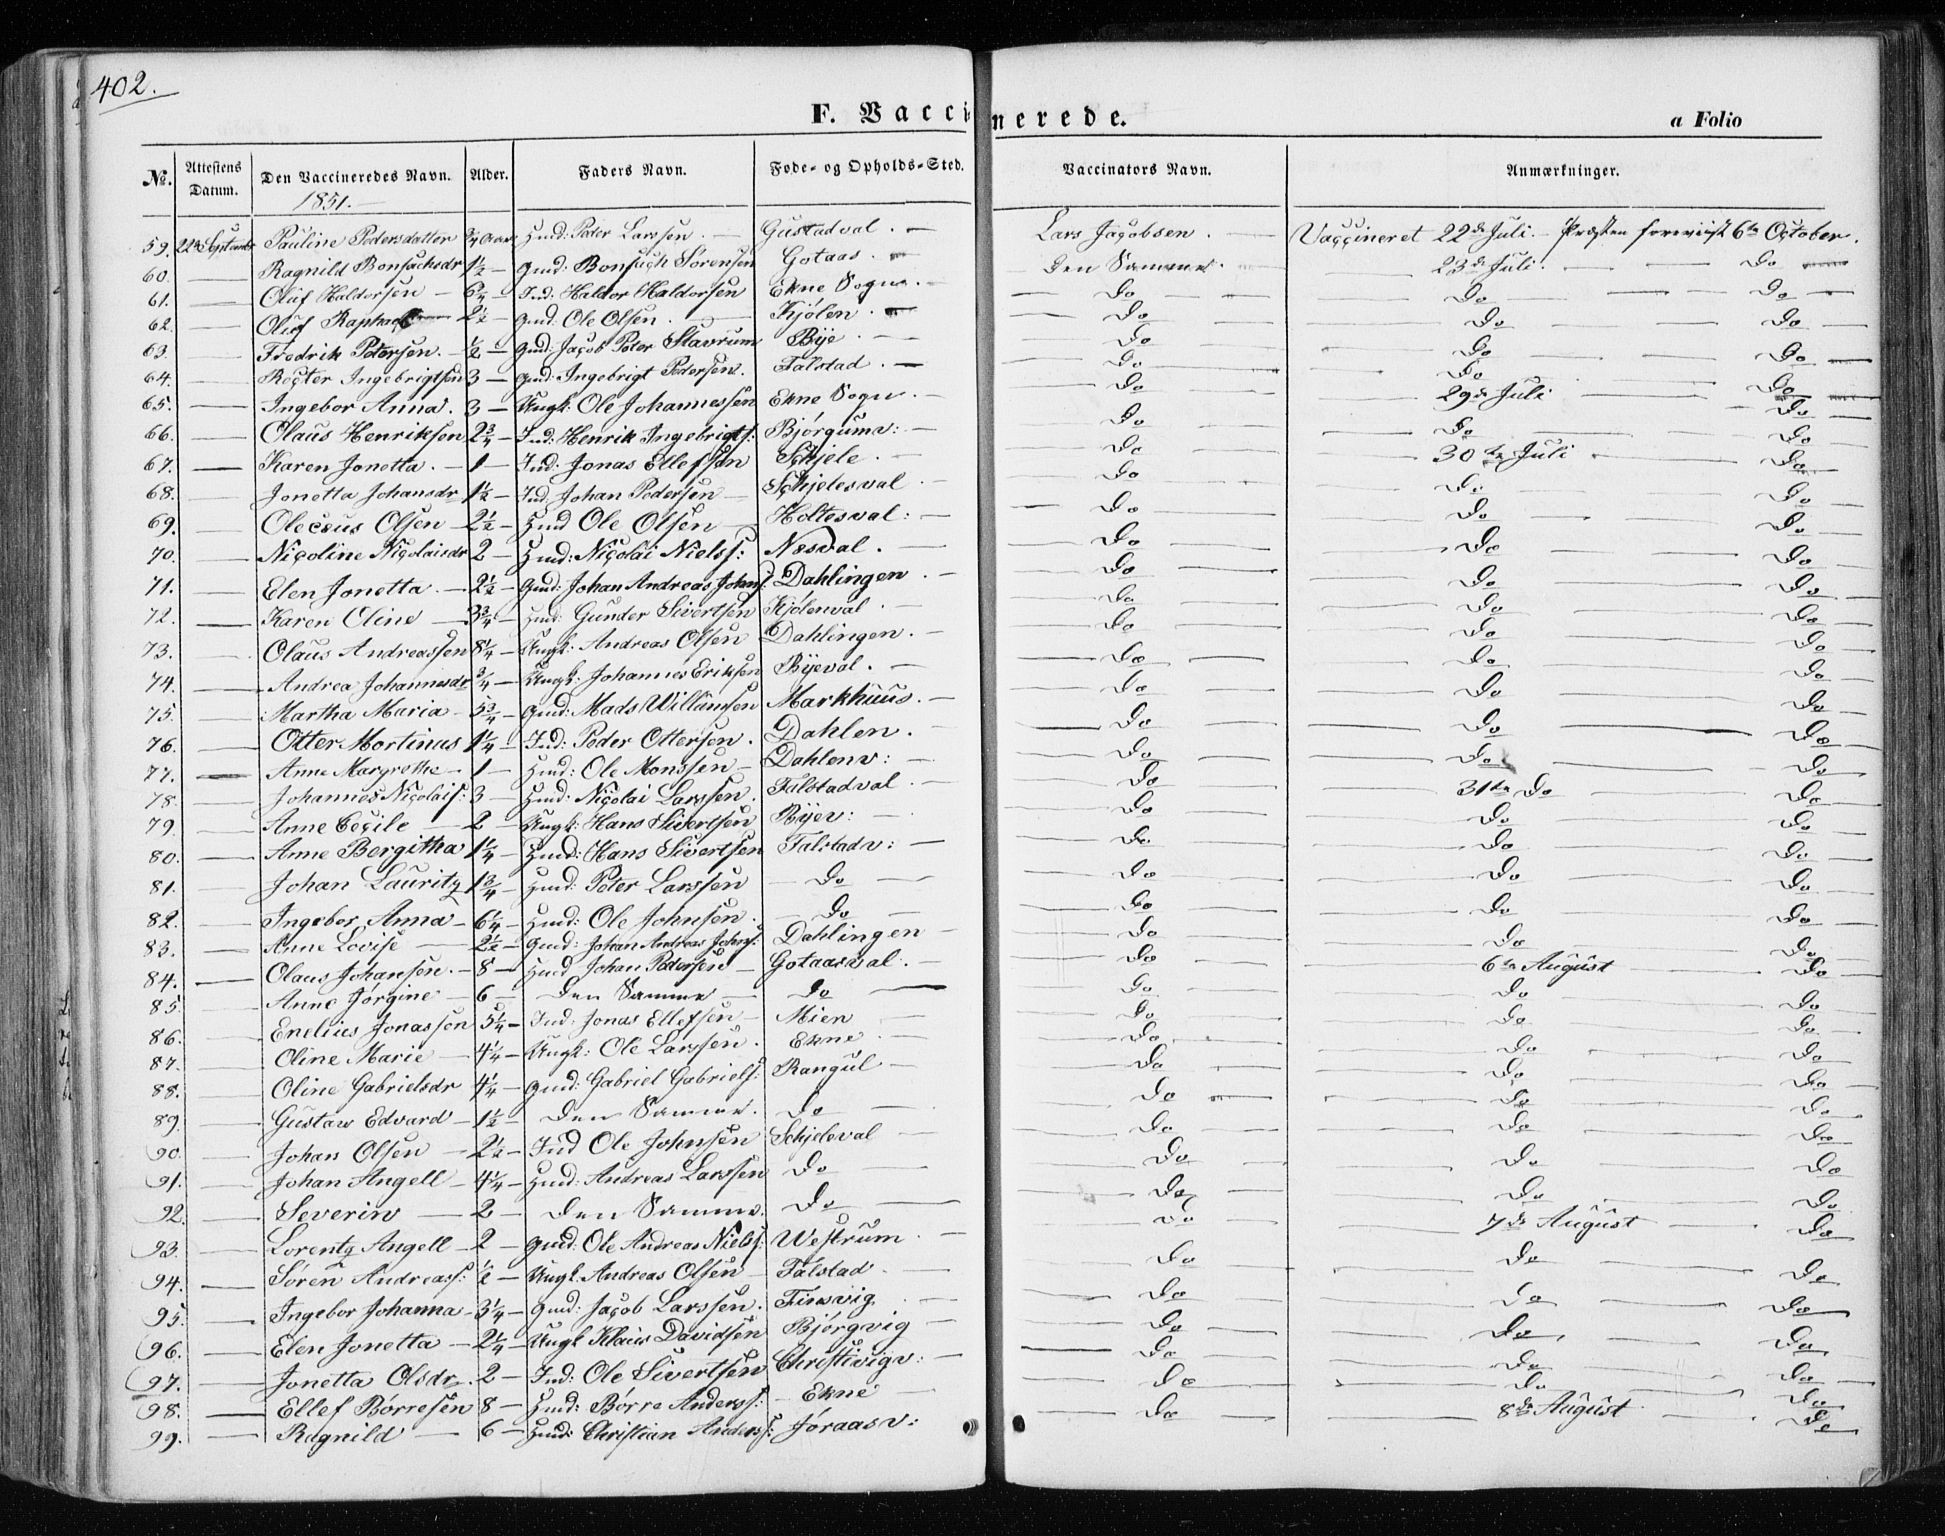 402.
F. Vaccinerede.
a Folio
No. Attestens Datum. Den Vaccineredes Navn. Alder. Faders Navn. Føde- og Opholds-Sted. Vaccinators Navn. Anmærkninger.
1851.
59. 22de Septembr Pauline Pedersdatter 3/4 Aar Hmd: Peder Larssen. Gustadval. Lars Jacobsen. Vaccineret 22de Juli. Præsten foreviist 6te October.
60. Ragnild Bonsachsdr 1½ Gmd: Bonsach Sørensen Gotaas. Den Samme. 23de Juli. Do
61. Oluf Haldorsen 6¾ Ind: Haldor Haldorsen Ekne Sogn. Do Do Do
62. Oluf Raphael 2½ Gmd: Ole Olsen. Kjølen. Do Do Do
63. Fredrik Petersen. ½ Gmd: Jacob Peter Stavrum Bye. Do Do Do
64. Recter Ingebrigtsen 3 Gmd: Ingebrigt Pedersen. Falstad. Do Do Do
65. Ingebor Anna. 3 Ungk: Ole Johannessen Ekne Sogn. Do 29de Juli Do
66. Olaus Henriksen 2¾ Ind: Henrik Ingebrigts: Bjørgumv: Do Do Do
67. Karen Jonetta. 1 Ind: Jonas Ellefsen Schjele. Do 30te Juli Do
68. Jonetta Johansdr 1½ Ind: Johan Pedersen Schjelesval Do Do Do
69. Oleceus Olsen 2½ Hmd Ole Olsen Holtesval: Do Do Do
70. Nicoline Nicolaisdr 2 Hmd: Nicolai Nielss: Næsval. Do Do Do
71. Elen Jonetta. 2½ Gmd: Johan Andreas Johns: Dahlingen. Do Do Do
72. Karen Oline 3¾ Hmd: Gunder Sivertsen Kjølenval. Do Do Do
73. Olaus Andreassen 8¼ Ungk: Andreas Olsen Dahlingen. Do Do Do
74. Andrea Johannesdr ¾ Ungk: Johannes Eriksen Byeval. Do Do Do
75. Martha Maria 5¾ Gmd: Mads Willumsen Markhuus. Do Do Do
76. Otter Mortinus 1¼ Ind: Peder Ottersen. Dahlen. Do Do Do
77. Anne Margrethe 1 Hmd: Ole Monssen Dahlenv: Do Do Do
78. Johannes Nicolais: 3 Hmd: Nicolai Larssen. Falstadval Do 31te Do Do
79. Anne Cecile 2 Ungk: Hans Sivertsen Byev: Do Do Do
80. Anne Bergitha 1¼ Hmd: Hans Sivertsen Falstadv: Do Do Do
81. Johan Lauritz 1¾ Hmd: Peter Larssen Do Do Do Do
82. Ingebor Anna 6¼ Hmd: Ole Johnsen. Do Do Do Do
83. Anne Lovise 2½ Gmd: Johan Andreas Johns: Dahlingen Do Do Do
84. Olaus Johansen. 8 Hmd Johan Pedersen Gotaasval. Do 6te August Do
85. Anne Jørgine 6 Den Samme Do Do Do Do
86. Enelius Jonassen 5¼ Ind: Jonas Ellefsen Mien Do Do Do
87. Oline Marie 4¼ Ungk: Ole Larssen. Ekne Do Do Do
88. Oline Gabrielsdr 4¼ Gmd: Gabriel Gabriels: Rangul Do Do Do
89. Gustav Edvard 1½ Den Samme. Do Do Do Do
90. Johan Olsen 2½ Ind Ole Johnsen Schjeleval Do Do Do
91. Johan Angell 4¼ Hmd: Andreas Larssen Do Do Do Do
92. Severin 2 Den Samme. Do Do Do Do
93. Lorentz Angell 2 Gmd: Ole Andreas Nielss: Westrum. Do 7de August Do
94. Søren Andreass: ½ Ungk: Andreas Olsen Falstad Do Do Do
95. Ingebor Johanna 3¼ Gmd: Jacob Larssen. Finsvig Do Do Do
96. Elen Jonetta 2¼ Ungk Klaus Davidsen Bjørgvig Do Do Do
97. Jonetta Olsdr. 2 Ind: Ole Sivertsen Christivigv: Do Do Do
98. Ellef Børresen 8 Hmd: Børre Anderss: Ekne Do Do Do
99. Ragnild 6 Hmd: Christian Anderss: Føraasv: Do 8de August Do